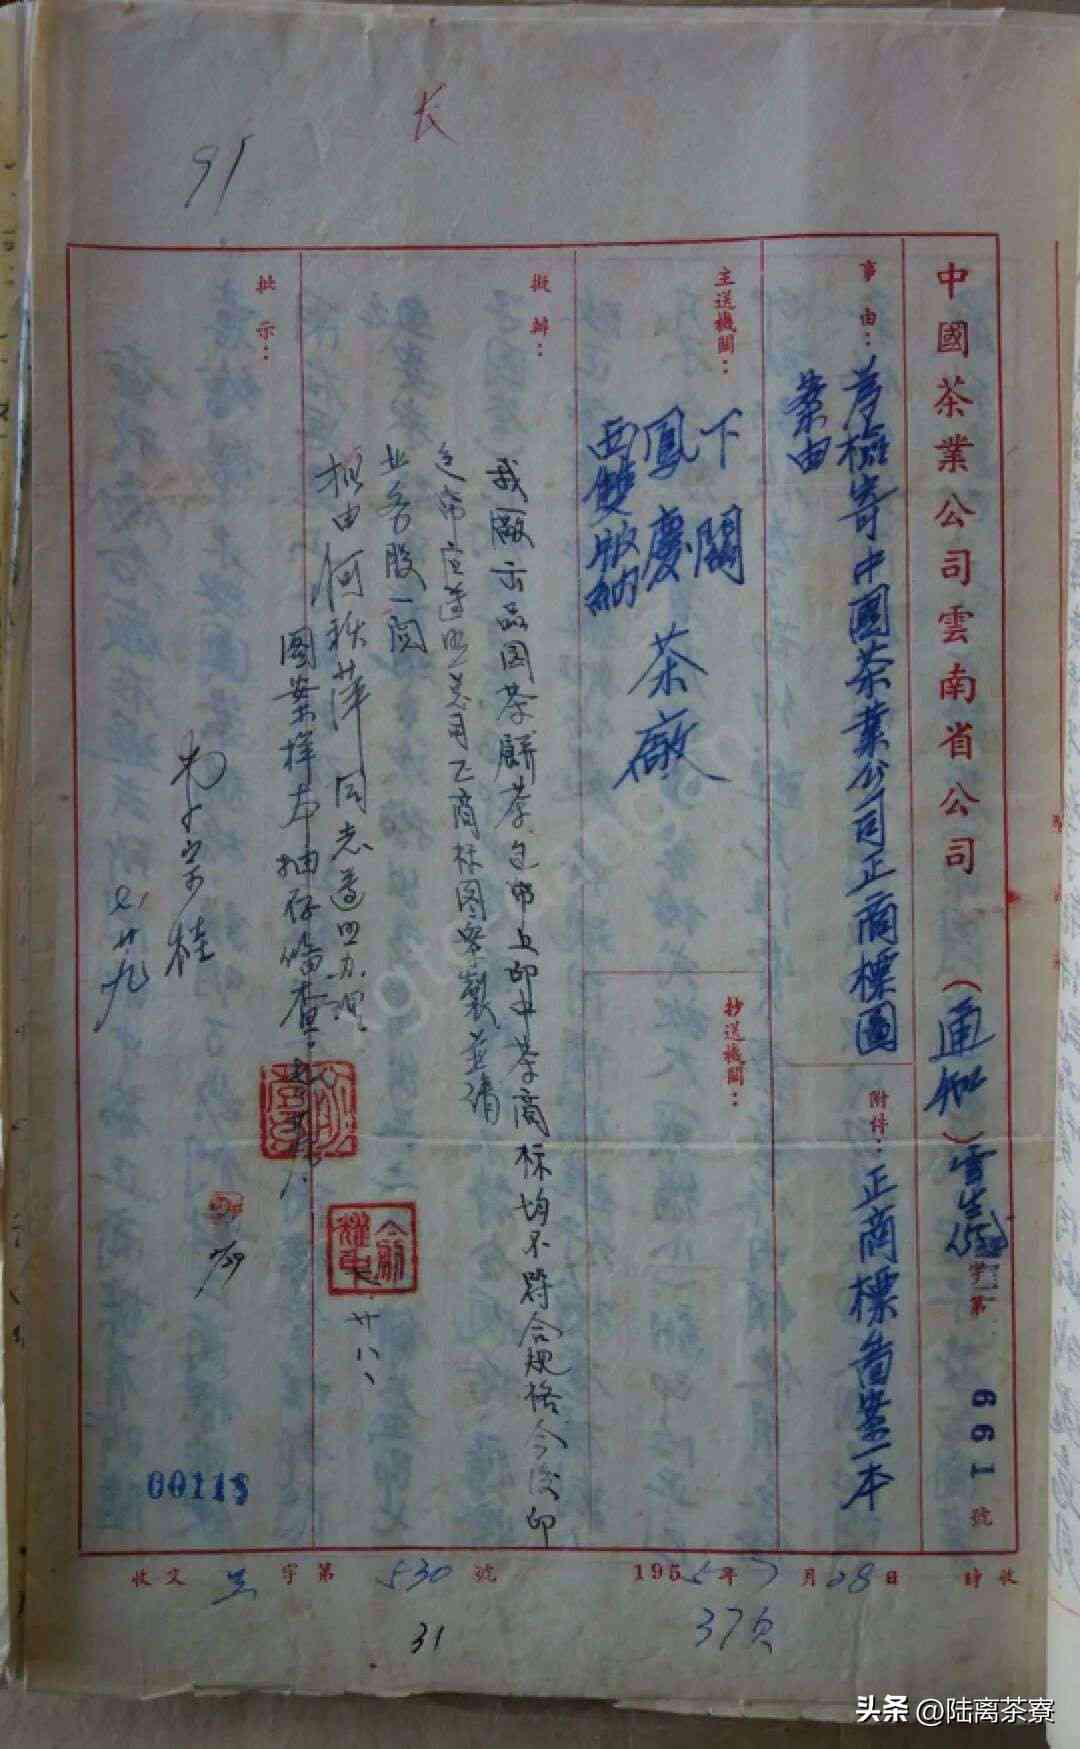 长
91
中國茶業公司雲南省公司（通知）雲生
字第 1661 號
事由：為檢寄中國茶業公司正商標圖
案由
附件：正商標圖案一本
主送機關：
下關
鳳慶
西雙版納
茶廠
抄送機關：
擬辦：
我廠出品团茶餅茶包帋上印中茶商标均不符合规格今后印
包帋应遵照总司之商标图案製並请
业务股一阅
批示：
拟由何秩萍同志遵照办理
图案样本抽存備查
00118
收文 字第 530 號
1955年7月28日 時收
31
37页
头条 @陆离茶寮